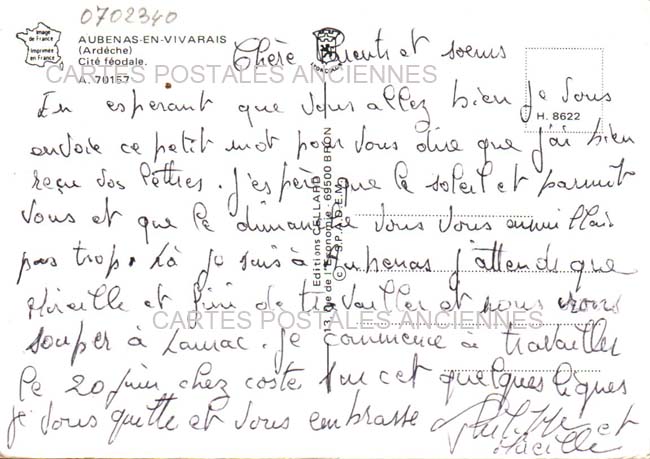 0702340
Image de France
Imprimée en France
AUBENAS-EN-VIVARAIS
(Ardèche)
Cité féodale.
A. 70157
LYON CARD
H. 8622
Editions CELLARD
13, rue de l'Economie - 69500 BRON
© S.P.A.D.E.M.
CARTES POSTALES ANCIENNES
CARTES POSTALES ANCIENNES
Chère Parents et soeurs
En espérant que vous allez bien je vous
envoie ce petit mot pour vous dire que j'ai bien
reçu vos lettres. j'espère que le soleil et parmit
vous et que le dimanche vous vous
pas trop. Là je suis à Aubenas j'attends que
Mireille et fini de travailler et nous irons
souper à Lanac. je commence à travailler
le 20 juin chez coste sur cet quelques lignes
je vous quitte et vous embrasse Philippe et
Mireille